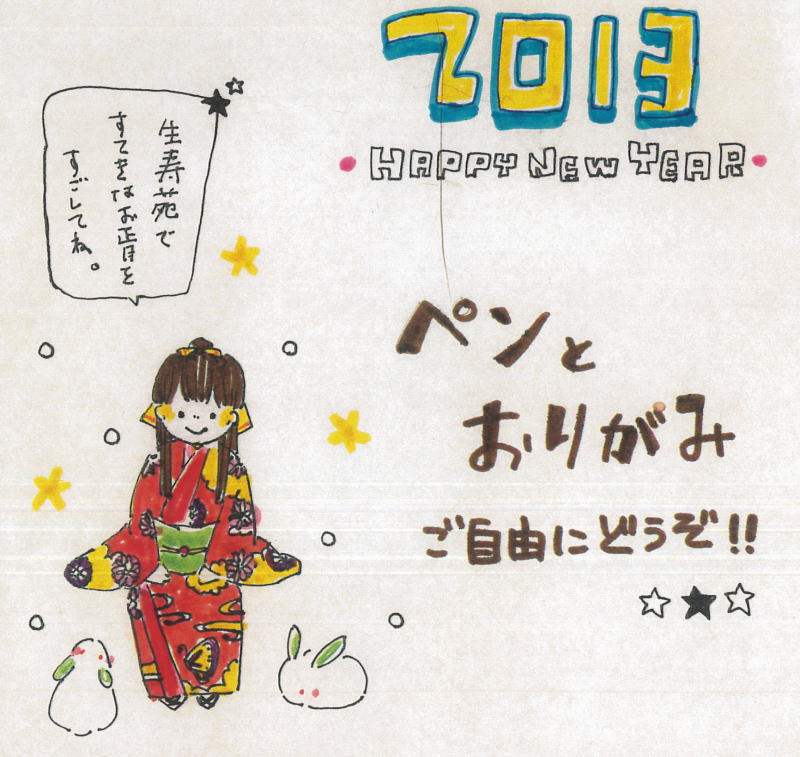 2013
HAPPY NEW YEAR
生寿苑で
すてきなお正月を
すごしてね。
ペンと
おりがみ
ご自由にどうぞ!!